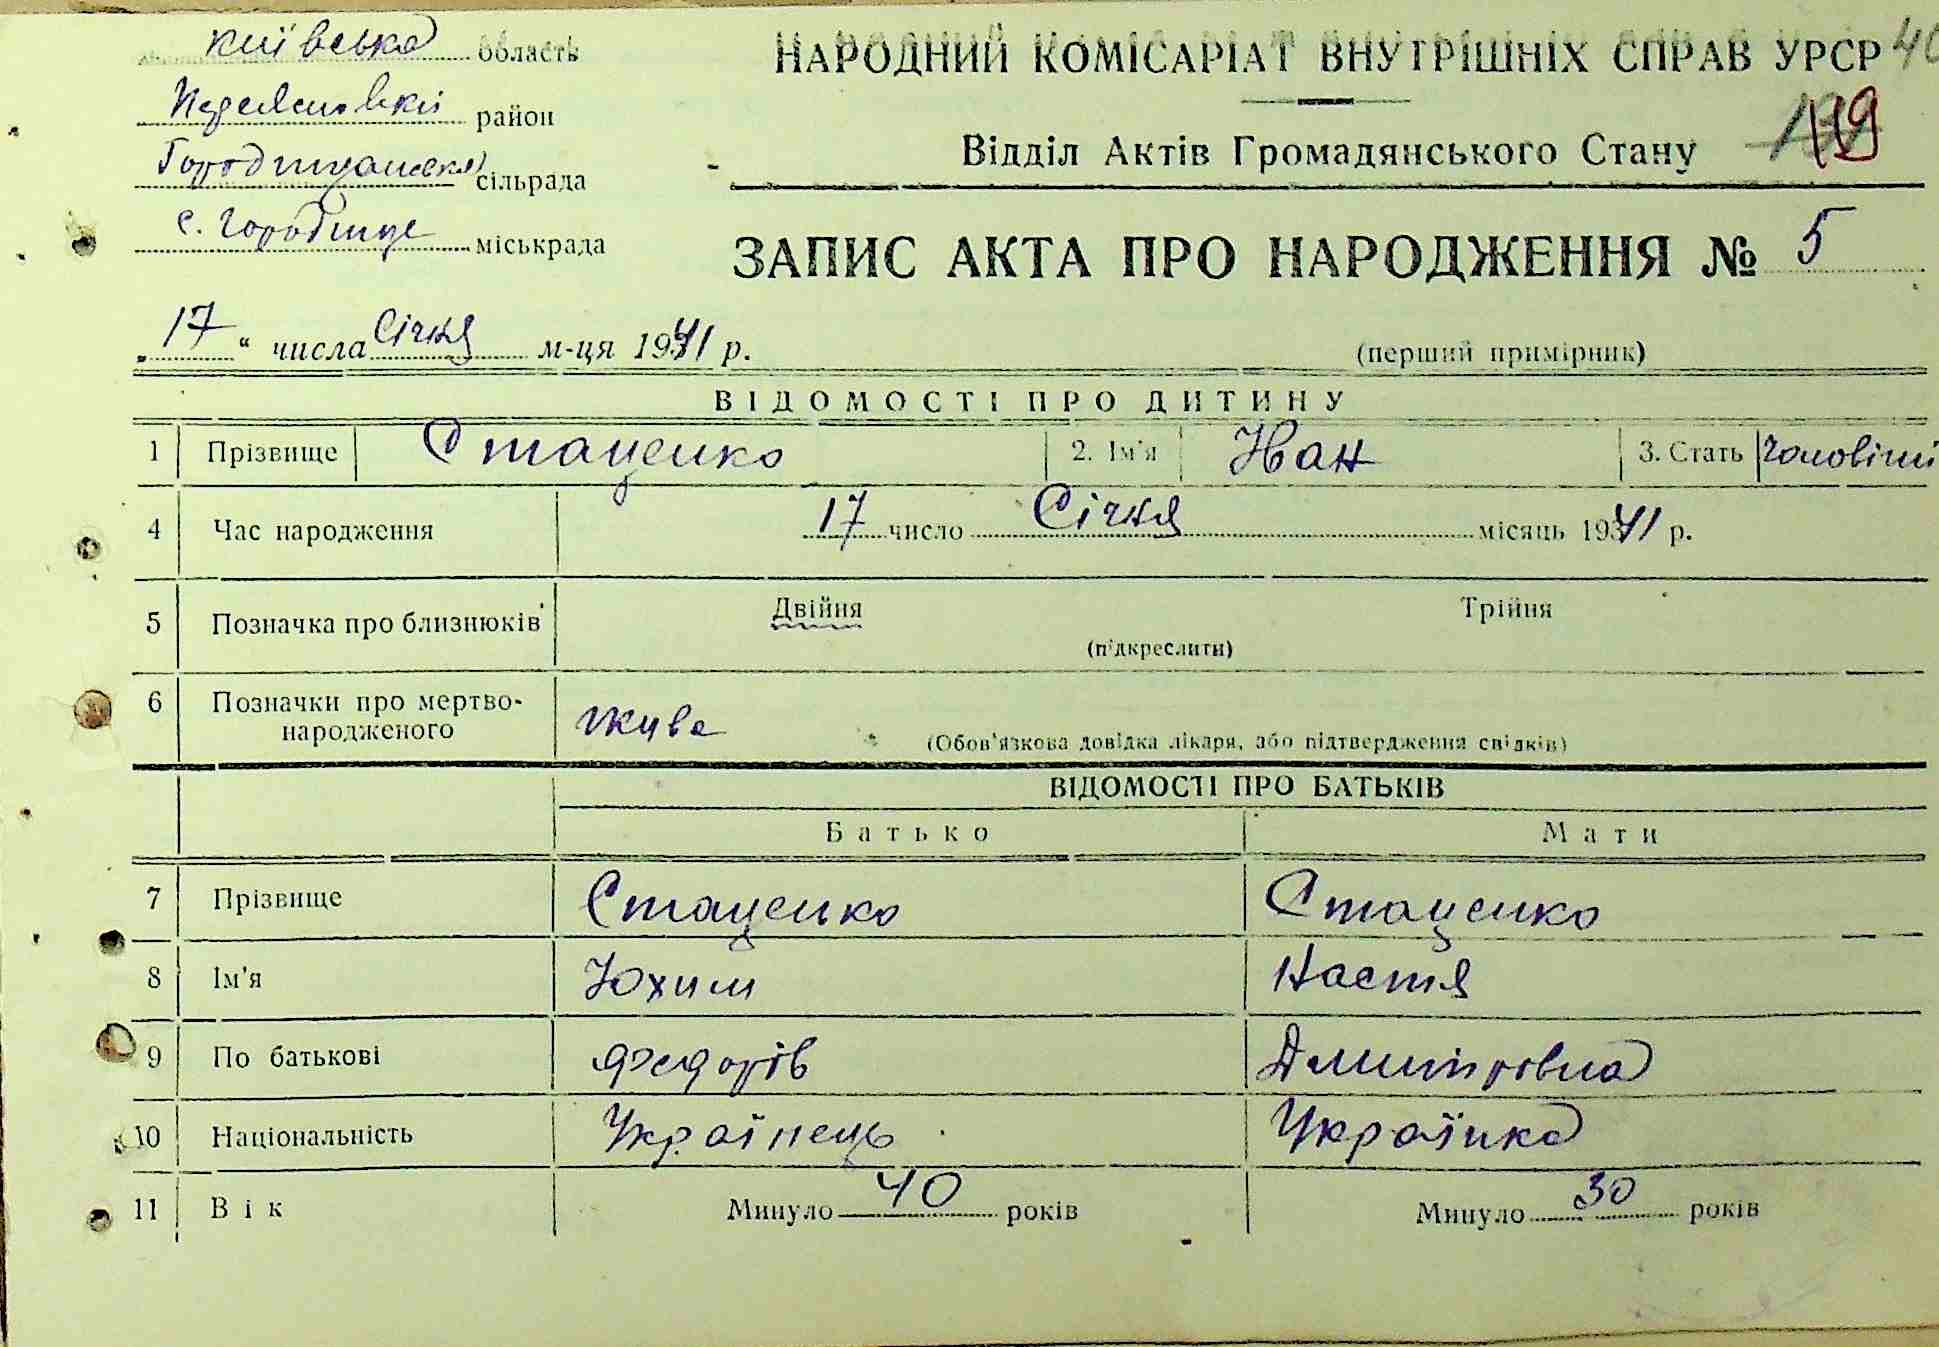 Київська область
Переяславський район
Городищанська сільрада
с. Городище міськрада
НАРОДНИЙ КОМІСАРІАТ ВНУТРІШНІХ СПРАВ УРСР
119
Відділ Актів Громадянського Стану
ЗАПИС АКТА ПРО НАРОДЖЕННЯ № 5
„17“ числа Січня м-ця 1941 р.
(перший примірник)
ВІДОМОСТІ ПРО ДИТИНУ
1 Прізвище Стаценко 2. Ім'я Іван 3. Стать Чоловічий
4 Час народження 17 число Січня місяць 1941 р.
5 Позначка про близнюків Двійня Трійня
(підкреслити)
6 Позначки про мертво-
народженого живе (Обов'язкова довідка лікаря, або підтвердження свідків)
ВІДОМОСТІ ПРО БАТЬКІВ
Батько Мати
7 Прізвище Стаценко Стаценко
8 Ім'я Юхим Настя
9 По батькові Федорів Дмитровна
10 Національність Українець Українка
11 Вік Минуло 40 років Минуло 30 років